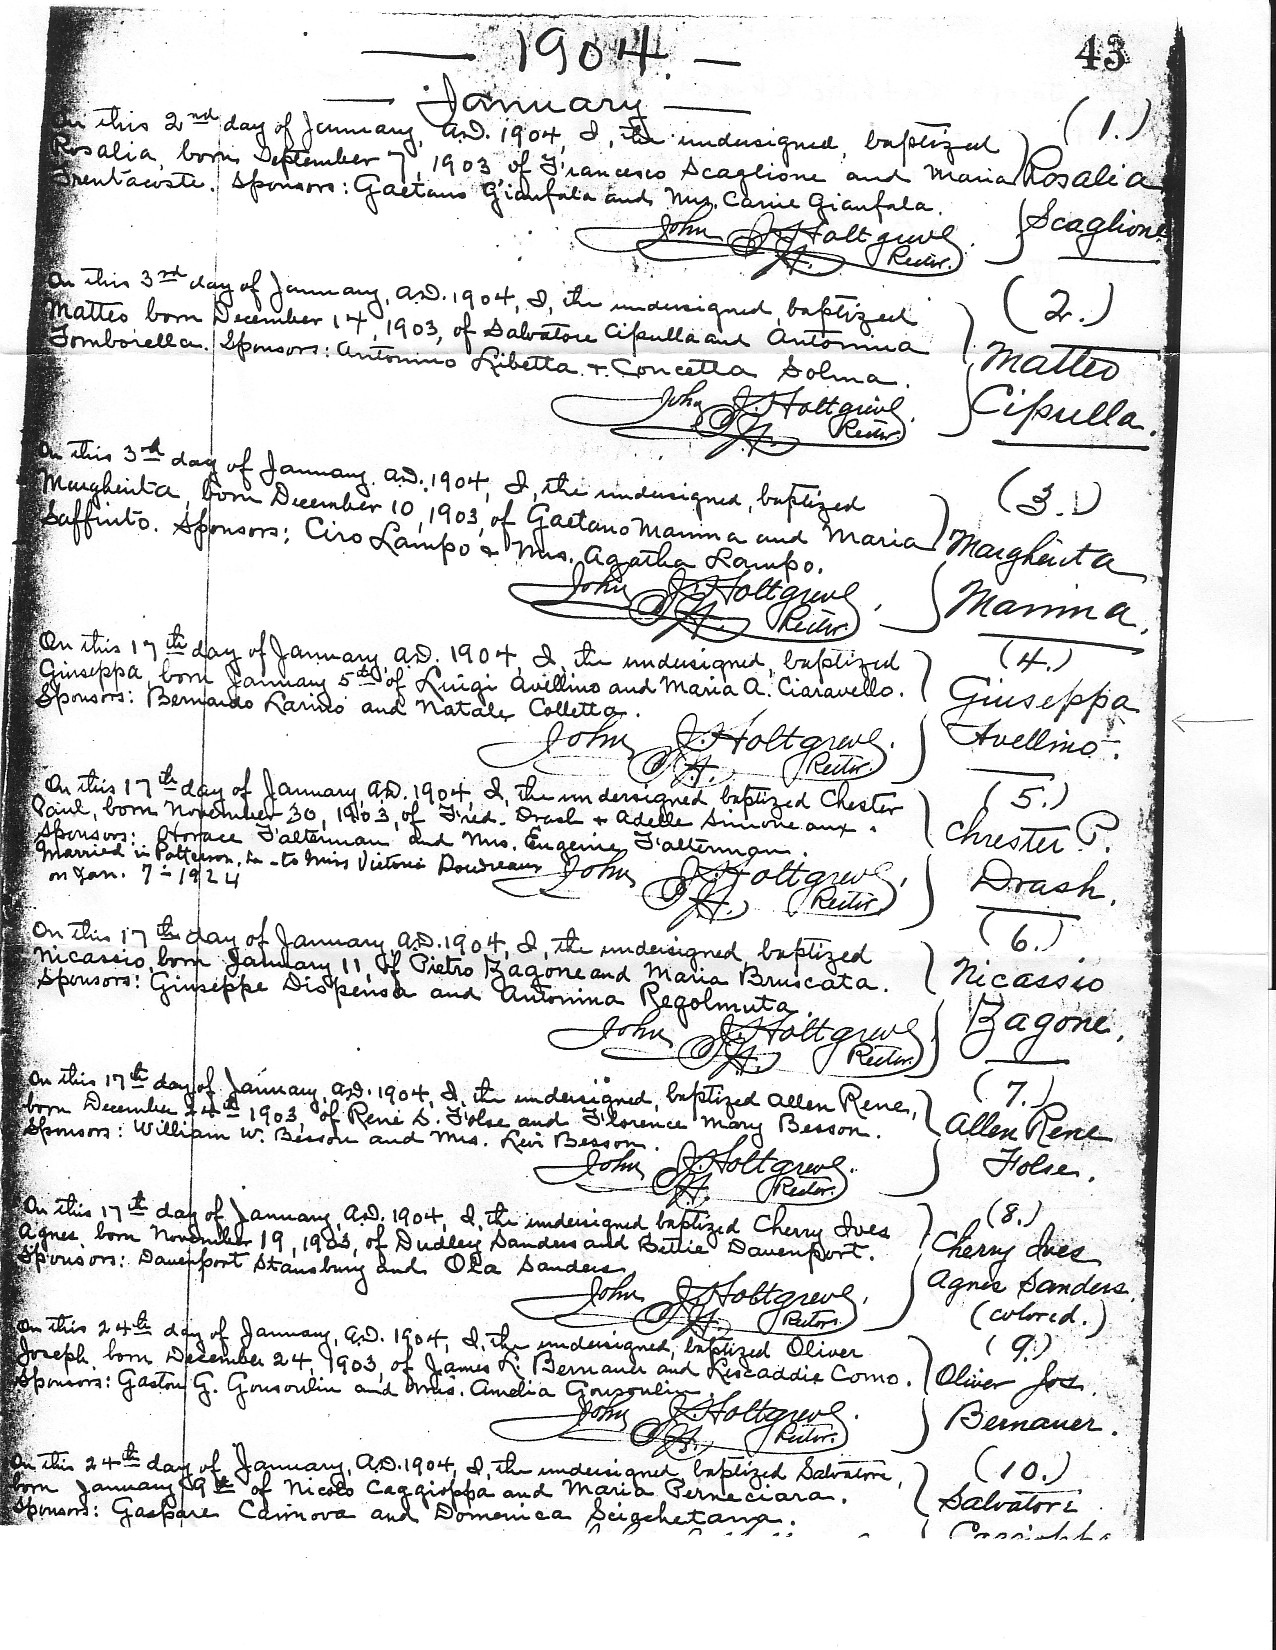 — 1904. —
43
— January —
On this 2nd day of January, A.D. 1904, I, the undersigned, baptized
Rosalia, born September 7, 1903, of Francesco Scaglione and Maria
Trentacoste. Sponsors: Gaetano Gianfala and Mrs. Carrie Gianfala.
John J. Holtgreve
Rector.
(1.)
Rosalia
Scaglione
On this 3rd day of January, A.D. 1904, I, the undersigned, baptized
Matteo born December 14, 1903, of Salvatore Cipulla and Antonina
Tomborella. Sponsors: Antonino Libetta & Concetta Solma.
John J. Holtgreve
Rector.
(2.)
Matteo
Cipulla.
On this 3rd day of January, A.D. 1904, I, the undersigned, baptized
Margherita, born December 10, 1903, of Gaetano Manina and Maria
Saffinto. Sponsors: Ciro Lampo & Mrs. Agatha Lampo.
John J. Holtgreve
Rector.
(3.)
Margherita
Manina.
On this 17th day of January, A.D. 1904, I, the undersigned, baptized
Giuseppa, born January 5th of Luigi Avellino and Maria A. Ciaravello.
Sponsors: Bernardo Larino and Natale Colletta.
John J. Holtgreve.
Rector.
(4.)
Giuseppa
Avellino.
On this 17th day of January, A.D. 1904, I, the undersigned baptized Chester
Paul, born November 30, 1903, of Fred. Drash & Adelle Simoneaux.
Sponsors: Horace Falterman and Mrs. Eugenie Falterman.
Married in Patterson, La - to Miss Victoria Boudreaux
on Jan. 7 - 1924
John J. Holtgreve,
Rector.
(5.)
Chrester P.
Drash.
On this 17th day of January, A.D. 1904, I, the undersigned, baptized
Nicassio, born January 11, of Pietro Zagone and Maria Bruscata.
Sponsors: Giuseppe Dispensa and Antonina Regolmuta.
John J. Holtgreve
Rector.
(6.)
Nicassio
Zagone.
On this 17th day of January, A.D. 1904, I, the undersigned, baptized Allen Rene,
born December 24th 1903, of Rene S. Folse and Florence Mary Besson.
Sponsors: William W. Besson and Mrs. Levi Besson.
John J. Holtgreve.
Rector.
(7.)
Allen Rene
Folse.
On this 17th day of January, A.D. 1904, I, the undersigned baptized Cherry Ives
Agnes, born November 19, 1903, of Dudley Sanders and Bettie Davenport.
Sponsors: Davenport Stansbury and Ola Sanders
John J. Holtgreve,
Rector.
(8.)
Cherry Ives
Agnes Sanders.
(colored.)
On this 24th day of January, A.D. 1904, I, the undersigned, baptized Oliver
Joseph, born December 24, 1903, of James L. Bernauer and Leocaddie Como.
Sponsors: Gaston G. Gonsoulin and Mrs. Amelia Gonsoulin.
John J. Holtgreve.
Rector.
(9.)
Oliver Jos.
Bernauer.
On this 24th day of January, A.D. 1904, I, the undersigned, baptized Salvatore,
born January 9th of Nicolo Caggioppa and Maria Perneciara.
Sponsors: Gaspare Casinova and Domenica Scigchetana.
(10.)
Salvatore